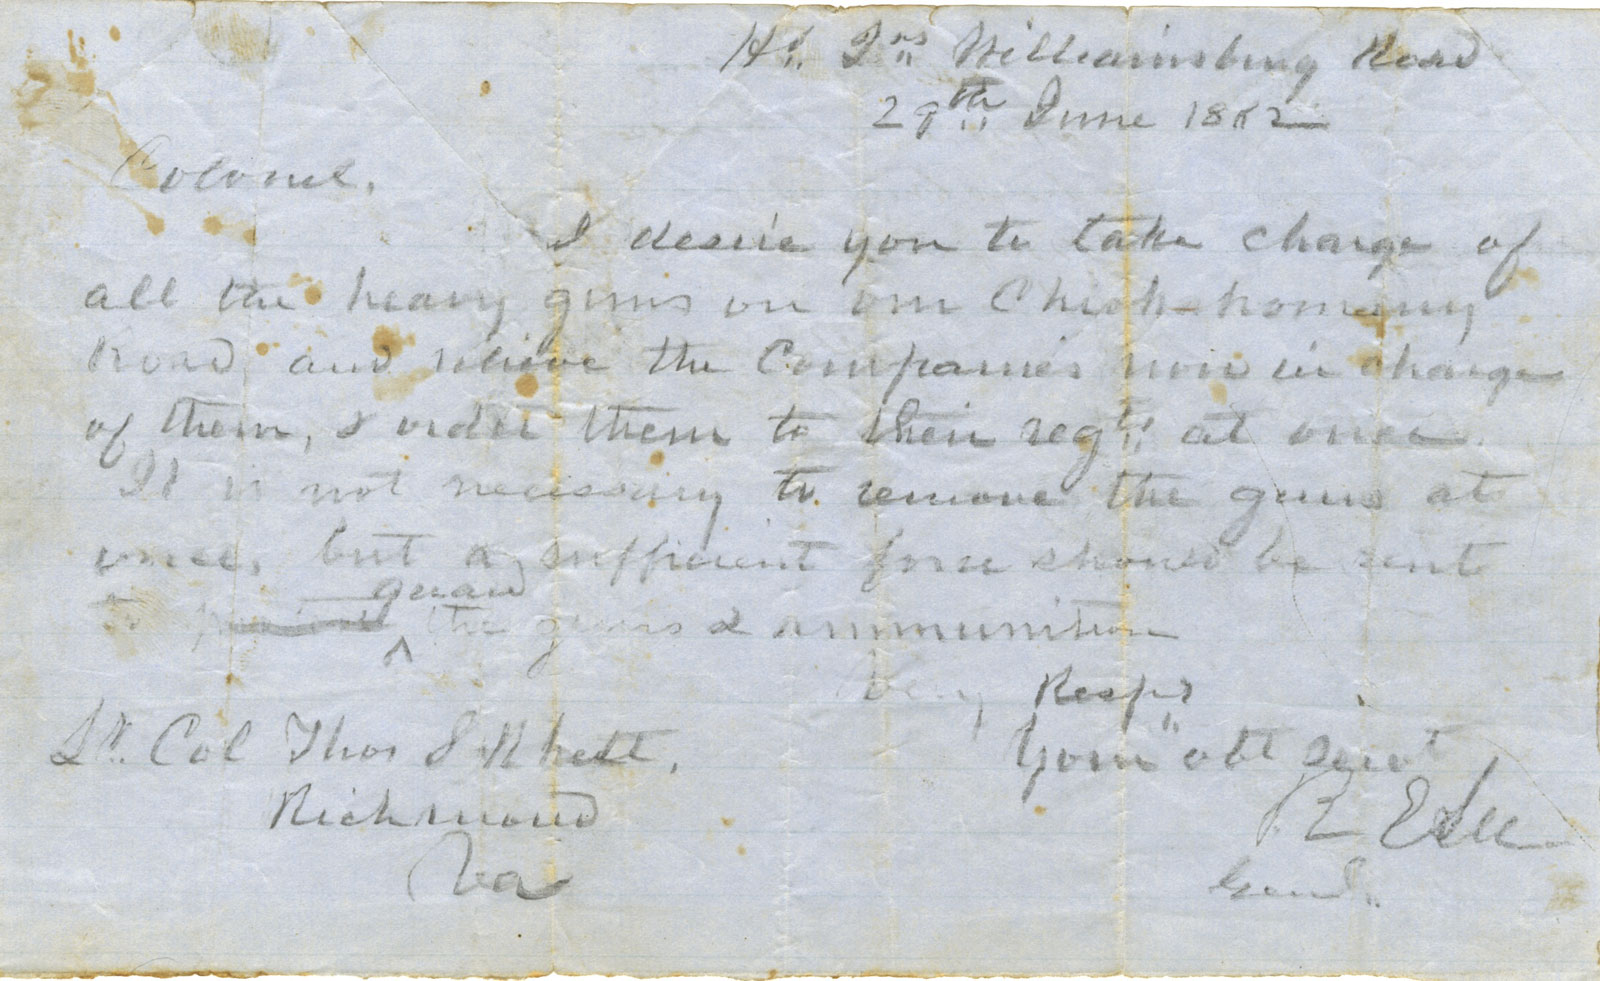 Hd. Qrs Williamsburg Road
29th June 1862
Colonel.
I desire you to take charge of
all the heavy guns on our Chick-hominy
Road and relieve the Companies now in charge
of them, & order them to their regts at once.
It is not necessary to remove the guns at
once, but a sufficient force should be sent
guard
to the guns & ammunition
Very Respy
Your obt servt
Lt. Col Thos S Rhett,
Richmond
Va
R E Lee
Genl.